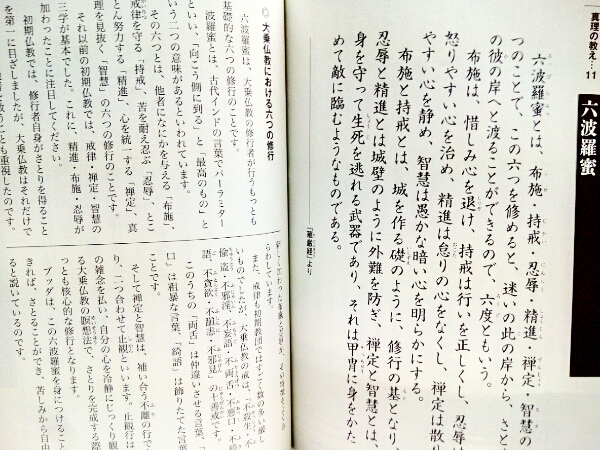 真理の教え…11
六波羅蜜
六波羅蜜とは、布施・持戒・忍辱・精進・禅定・智慧の
つのことで、この六つを修めると、迷いの此の岸から、さと
の彼の岸へと渡ることができるので、六度ともいう。
布施は、惜しみ心を退け、持戒は行いを正しくし、忍辱は
怒りやすい心を治め、精進は怠りの心をなくし、禅定は散り
やすい心を静め、智慧は愚かな暗い心を明らかにする。
布施と持戒とは、城を作る礎のように、修行の基となり、
忍辱と精進とは城壁のように外難を防ぎ、禅定と智慧とは、
身を守って生死を逃れる武器であり、それは甲冑に身をかた
めて敵に臨むようなものである。
より
大乗仏教における六つの修行
六波羅蜜は、大乗仏教の修行者が行うもっとも
基礎的な六つの修行のことです。
波羅蜜とは、古代インドの言葉でパーラミター
といい、「向こう側に到る」と「最高のもの」と
いう二つの意味があるといわれています。
その六つとは、他者になにかを与える「布施」、
戒律を守る「持戒」、苦を耐え忍ぶ「忍辱」、とこ
とん努力する「精進」、心を統一する「禅定」、真
理を見抜く「智慧」の六つの修行のことです。
それ以前の初期仏教では、戒律・禅定・智慧の
三学が基本でした。これに、精進・布施・忍辱が
加わったことに注目してください。
初期仏教では、修行者自身がさとりを得ること
を第一に目ざしましたが、大乗仏教はそれだけで
も重視したのです。
らわしています。
また、戒律も初期教団ではすべて数の多い厳し
いものでしたが、大乗仏教の戒は、「不殺生、不
偸盗、不邪淫、不妄語、不両舌、不悪口、不綺
語、不貪欲、不瞋恚、不邪見」の十善戒です。
このうちの「両舌」は仲違いさせる言葉、「
口」は粗暴な言葉、「綺語」は飾りたてた言葉
ことです。
そして禅定と智慧は、補い合う不離の行で
り、二つ合わせて止観といいます。止観行は
の雑念を払い、自分の心を冷静にじっくり観
る大乗仏教の瞑想法で、さとりを完成する際
っとも核心的な修行となります。
ブッダは、この六波羅蜜を身につけること
きれば、さとることができ、苦しみから自由
ると説いているのです。